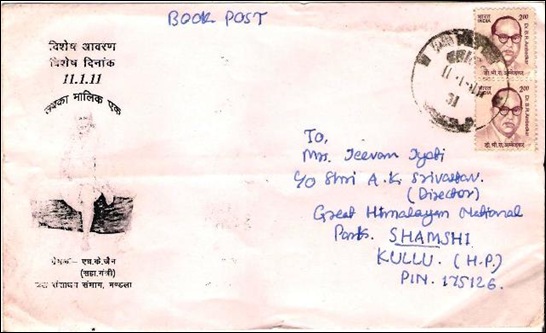 BOOK POST
विशेष आवरण
विशेष दिनांक
11.1.11
सबका मालिक एक
प्रेषक:- एच.के.जैन
(सहा.यंत्री)
जल संसाधन संभाग, मण्डला
भारत
INDIA
2.00
Dr. B.R. Ambedkar
डॉ. बी. आर. अम्बेडकर
भारत
INDIA
2.00
Dr. B.R. Ambedkar
डॉ. बी. आर. अम्बेडकर
31
To,
Mrs. Jeevan Jyoti
C/O Shri A.K. Srivastav.
(Director)
Great Himalayan National
Park. SHAMSHI
KULLU. (H.P.)
PIN. 175126.